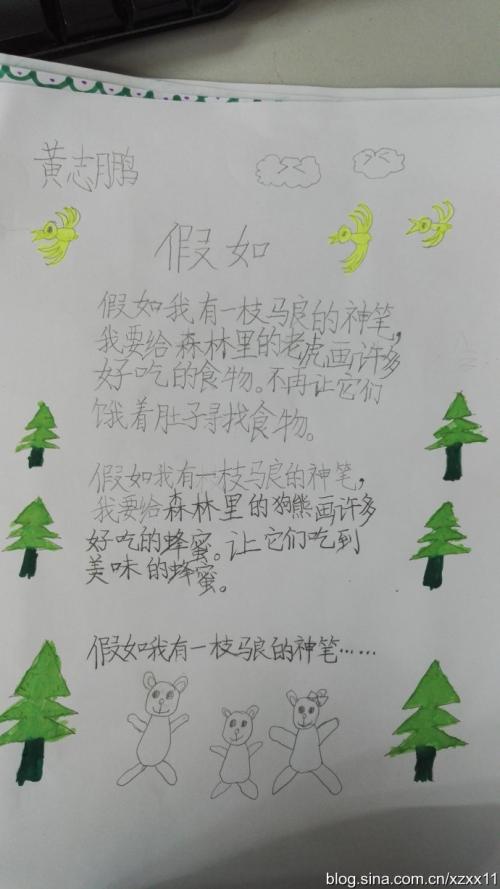 黄志鹏
假如
假如我有一枝马良的神笔,
我要给森林里的老虎画许多
好吃的食物。不再让它们
饿着肚子寻找食物。
假如我有一枝马良的神笔,
我要给森林里的狗熊画许多
好吃的蜂蜜。让它们吃到
美味的蜂蜜。
假如我有一枝马良的神笔……
blog.sina.com.cn/xzxx11